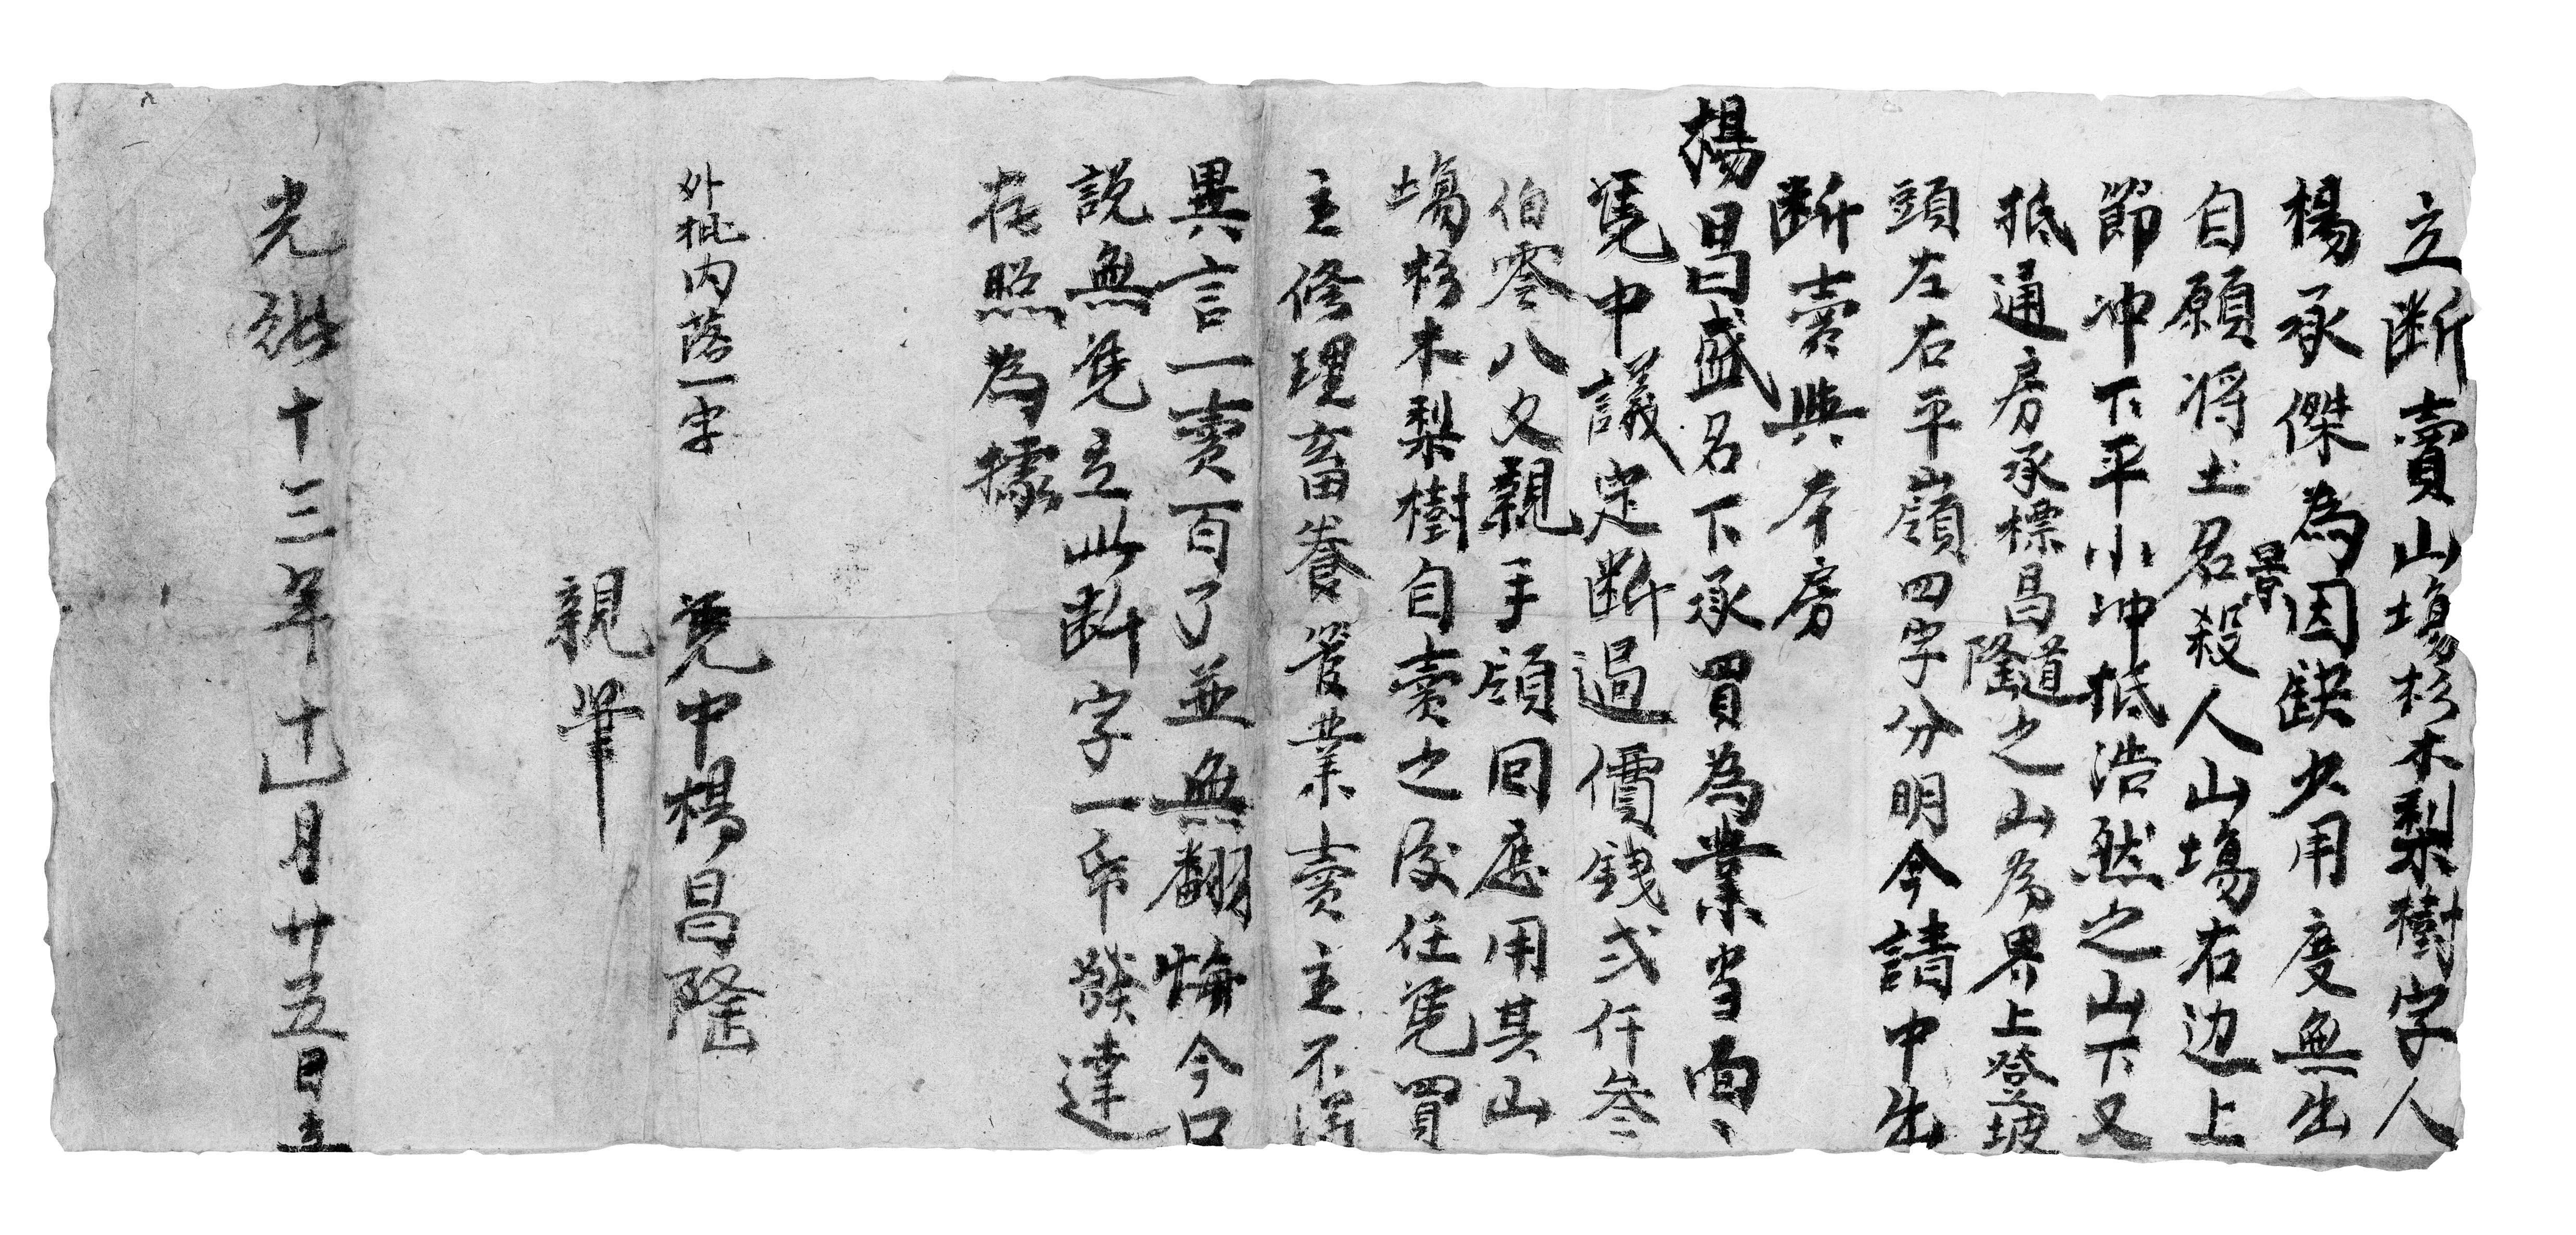 立断賣山塲杉木梨樹字人
楊承傑為因缺少用度無出
自願將土名景殺人山塲右边上
節冲下平小冲抵浩然之山下又
抵通房承標昌道隆之山為界上登坡
頭左右平嶺四字分明今請中出
断賣與本房
楊昌盛名下承買為業当面、
凴中議定断過價錢弍仟叁
伯零八文親手領回應用其山
塲杉木梨樹自賣之後任凴買
主修理畜養管業賣主不得
異言一賣百了並無翻悔今口
說無凴立此断字一帋發達
存照為據
外批内落一字
凴中楊昌隆
親筆
光緒十三年十一月廿五日立